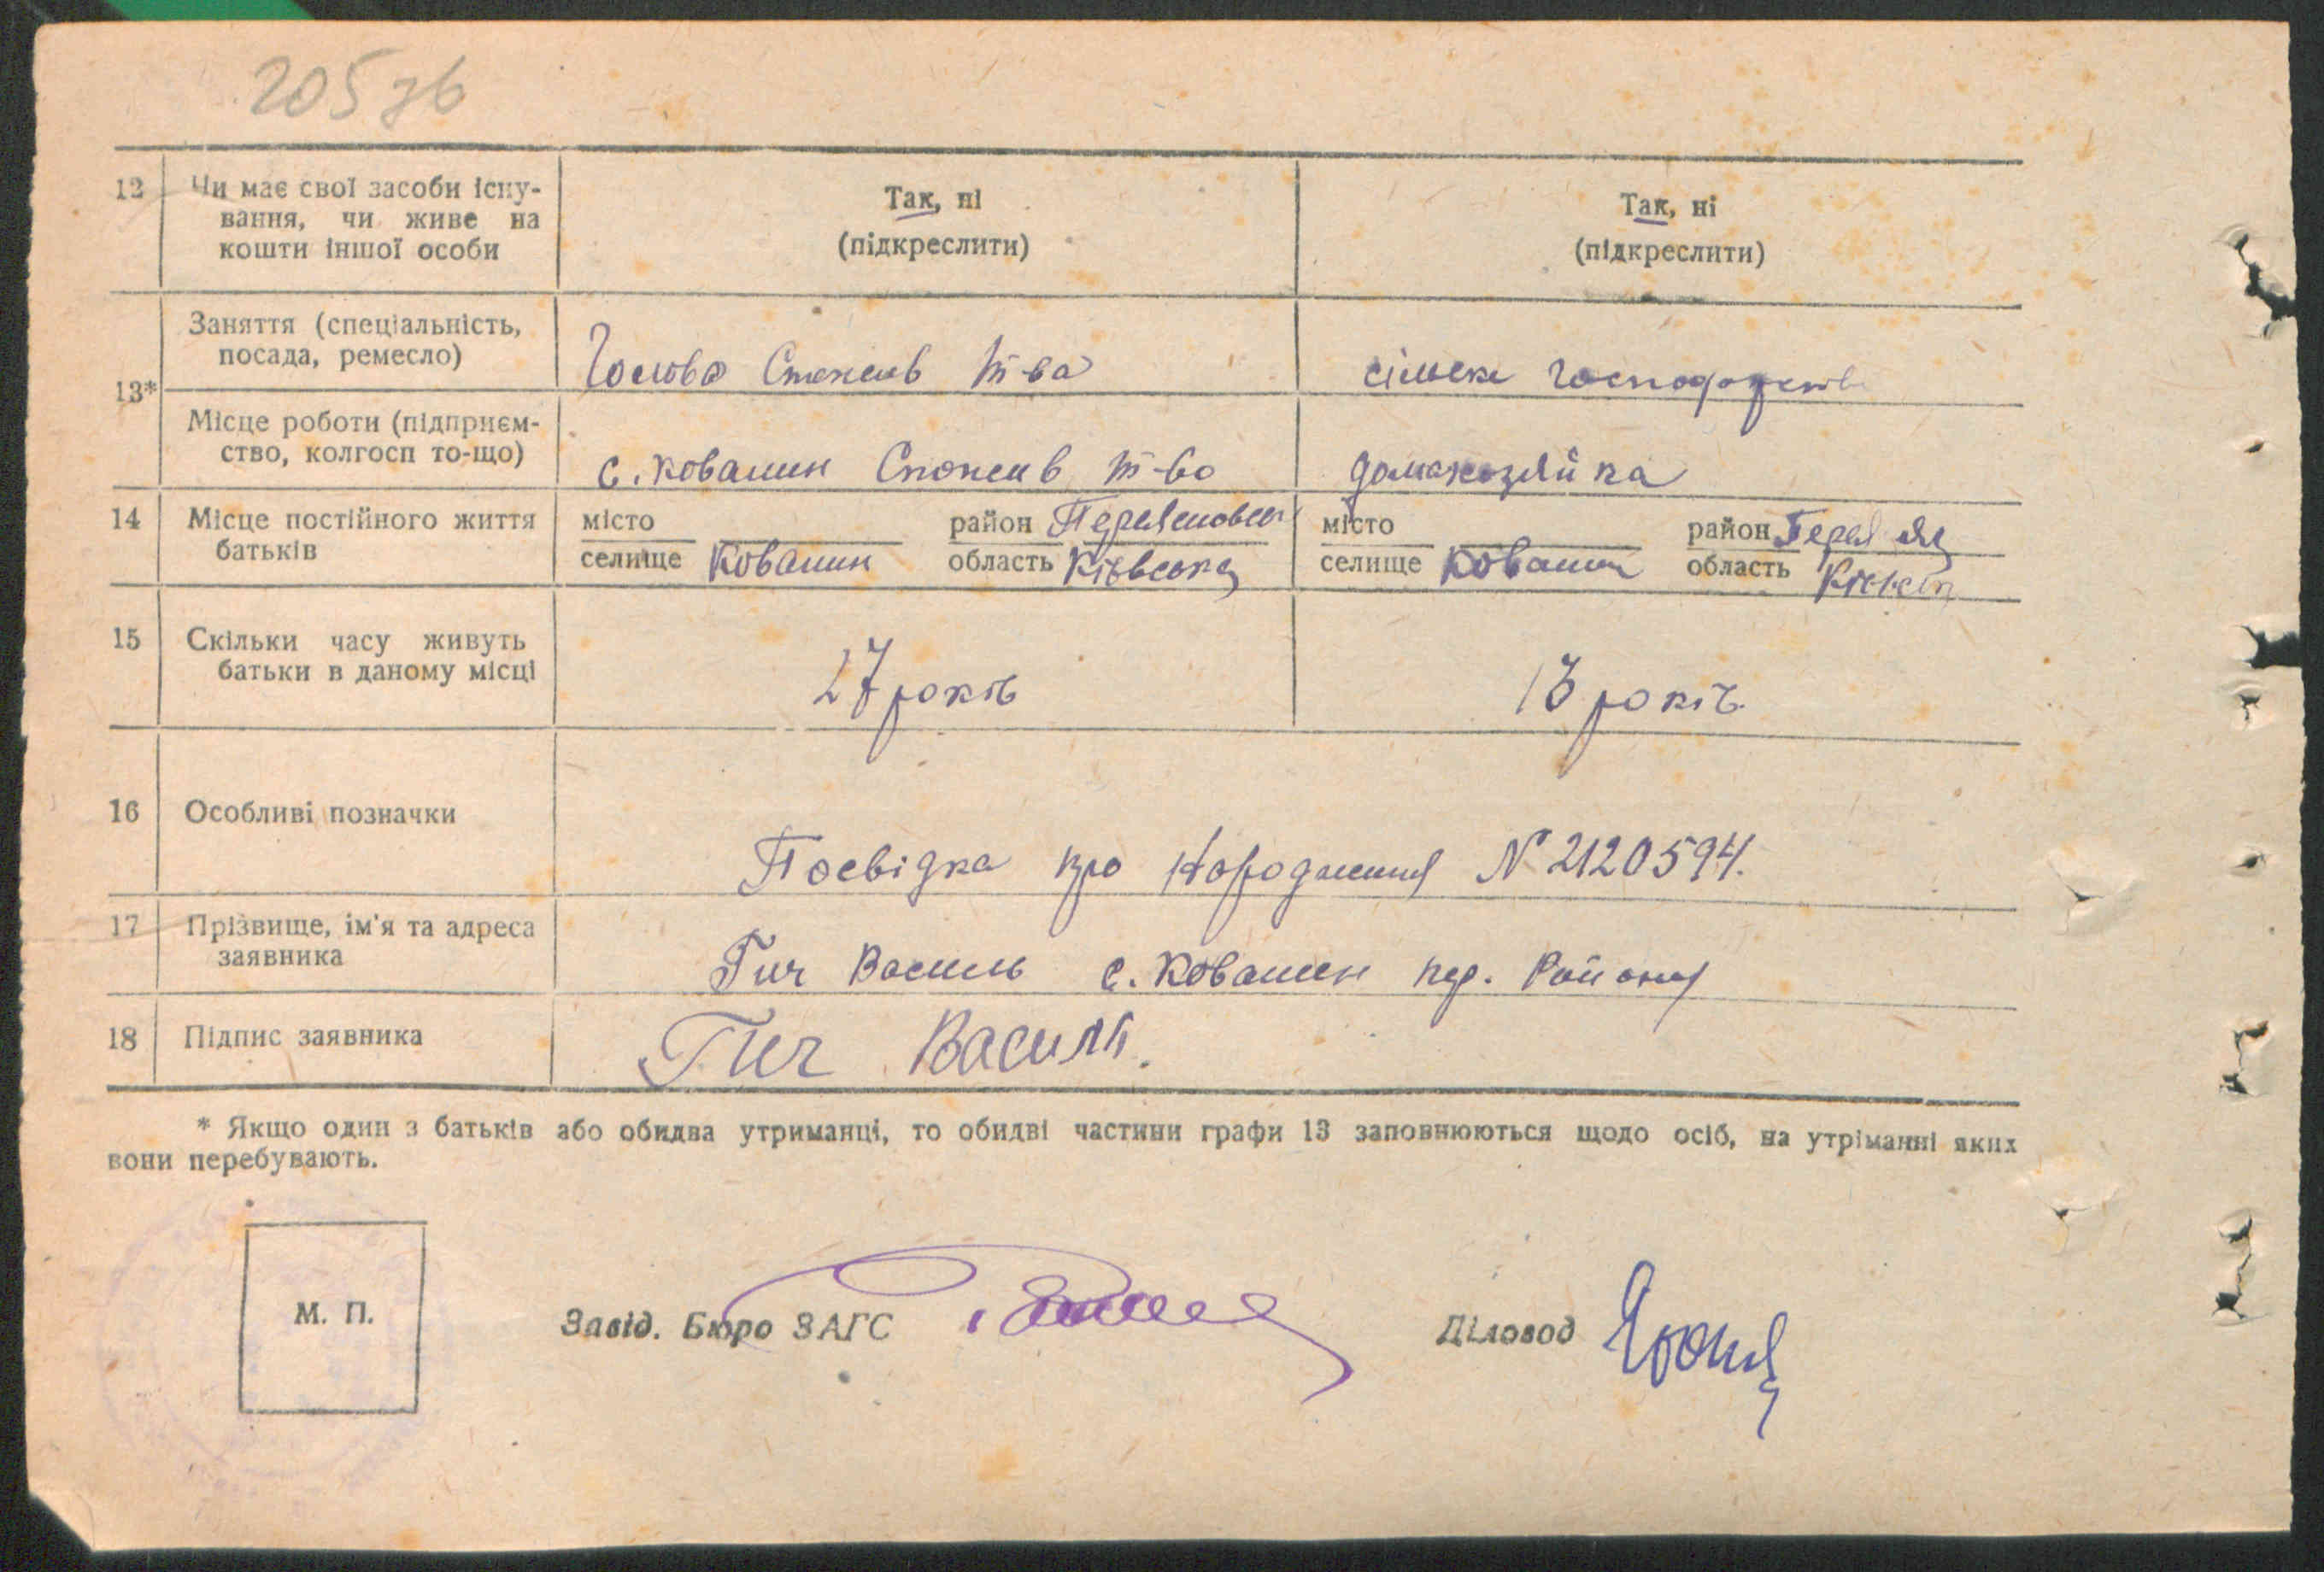 205 зв
12 Чи має свої засоби існу-
вання, чи живе на
кошти іншої особи
Так, ні
(підкреслити)
Так, ні
(підкреслити)
13*
Заняття (спеціальність,
посада, ремесло)
Голова Спожив т-ва
сільске господарство
Місце роботи (підприєм-
ство, колгосп то-що)
с. Ковалин Спожив т-во
домахозяйка
14 Місце постійного життя
батьків
місто район
селище Ковалин область Київська
місто район
селище Ковалин область
15 Скільки часу живуть
батьки в даному місці
27 років
13 років
16 Особливі позначки
Посвідка про народження N 2120594.
17 Прізвище, ім'я та адреса
заявника
Гич Василь с. Ковалин пер. Району
18 Підпис заявника
Гич Василь.
* Якщо один з батьків або обидва утриманці, то обидві частини графи 13 заповнюються щодо осіб, на утріманні яких
вони перебувають.
М. П.
Завід. Бюро ЗАГС
Діловод